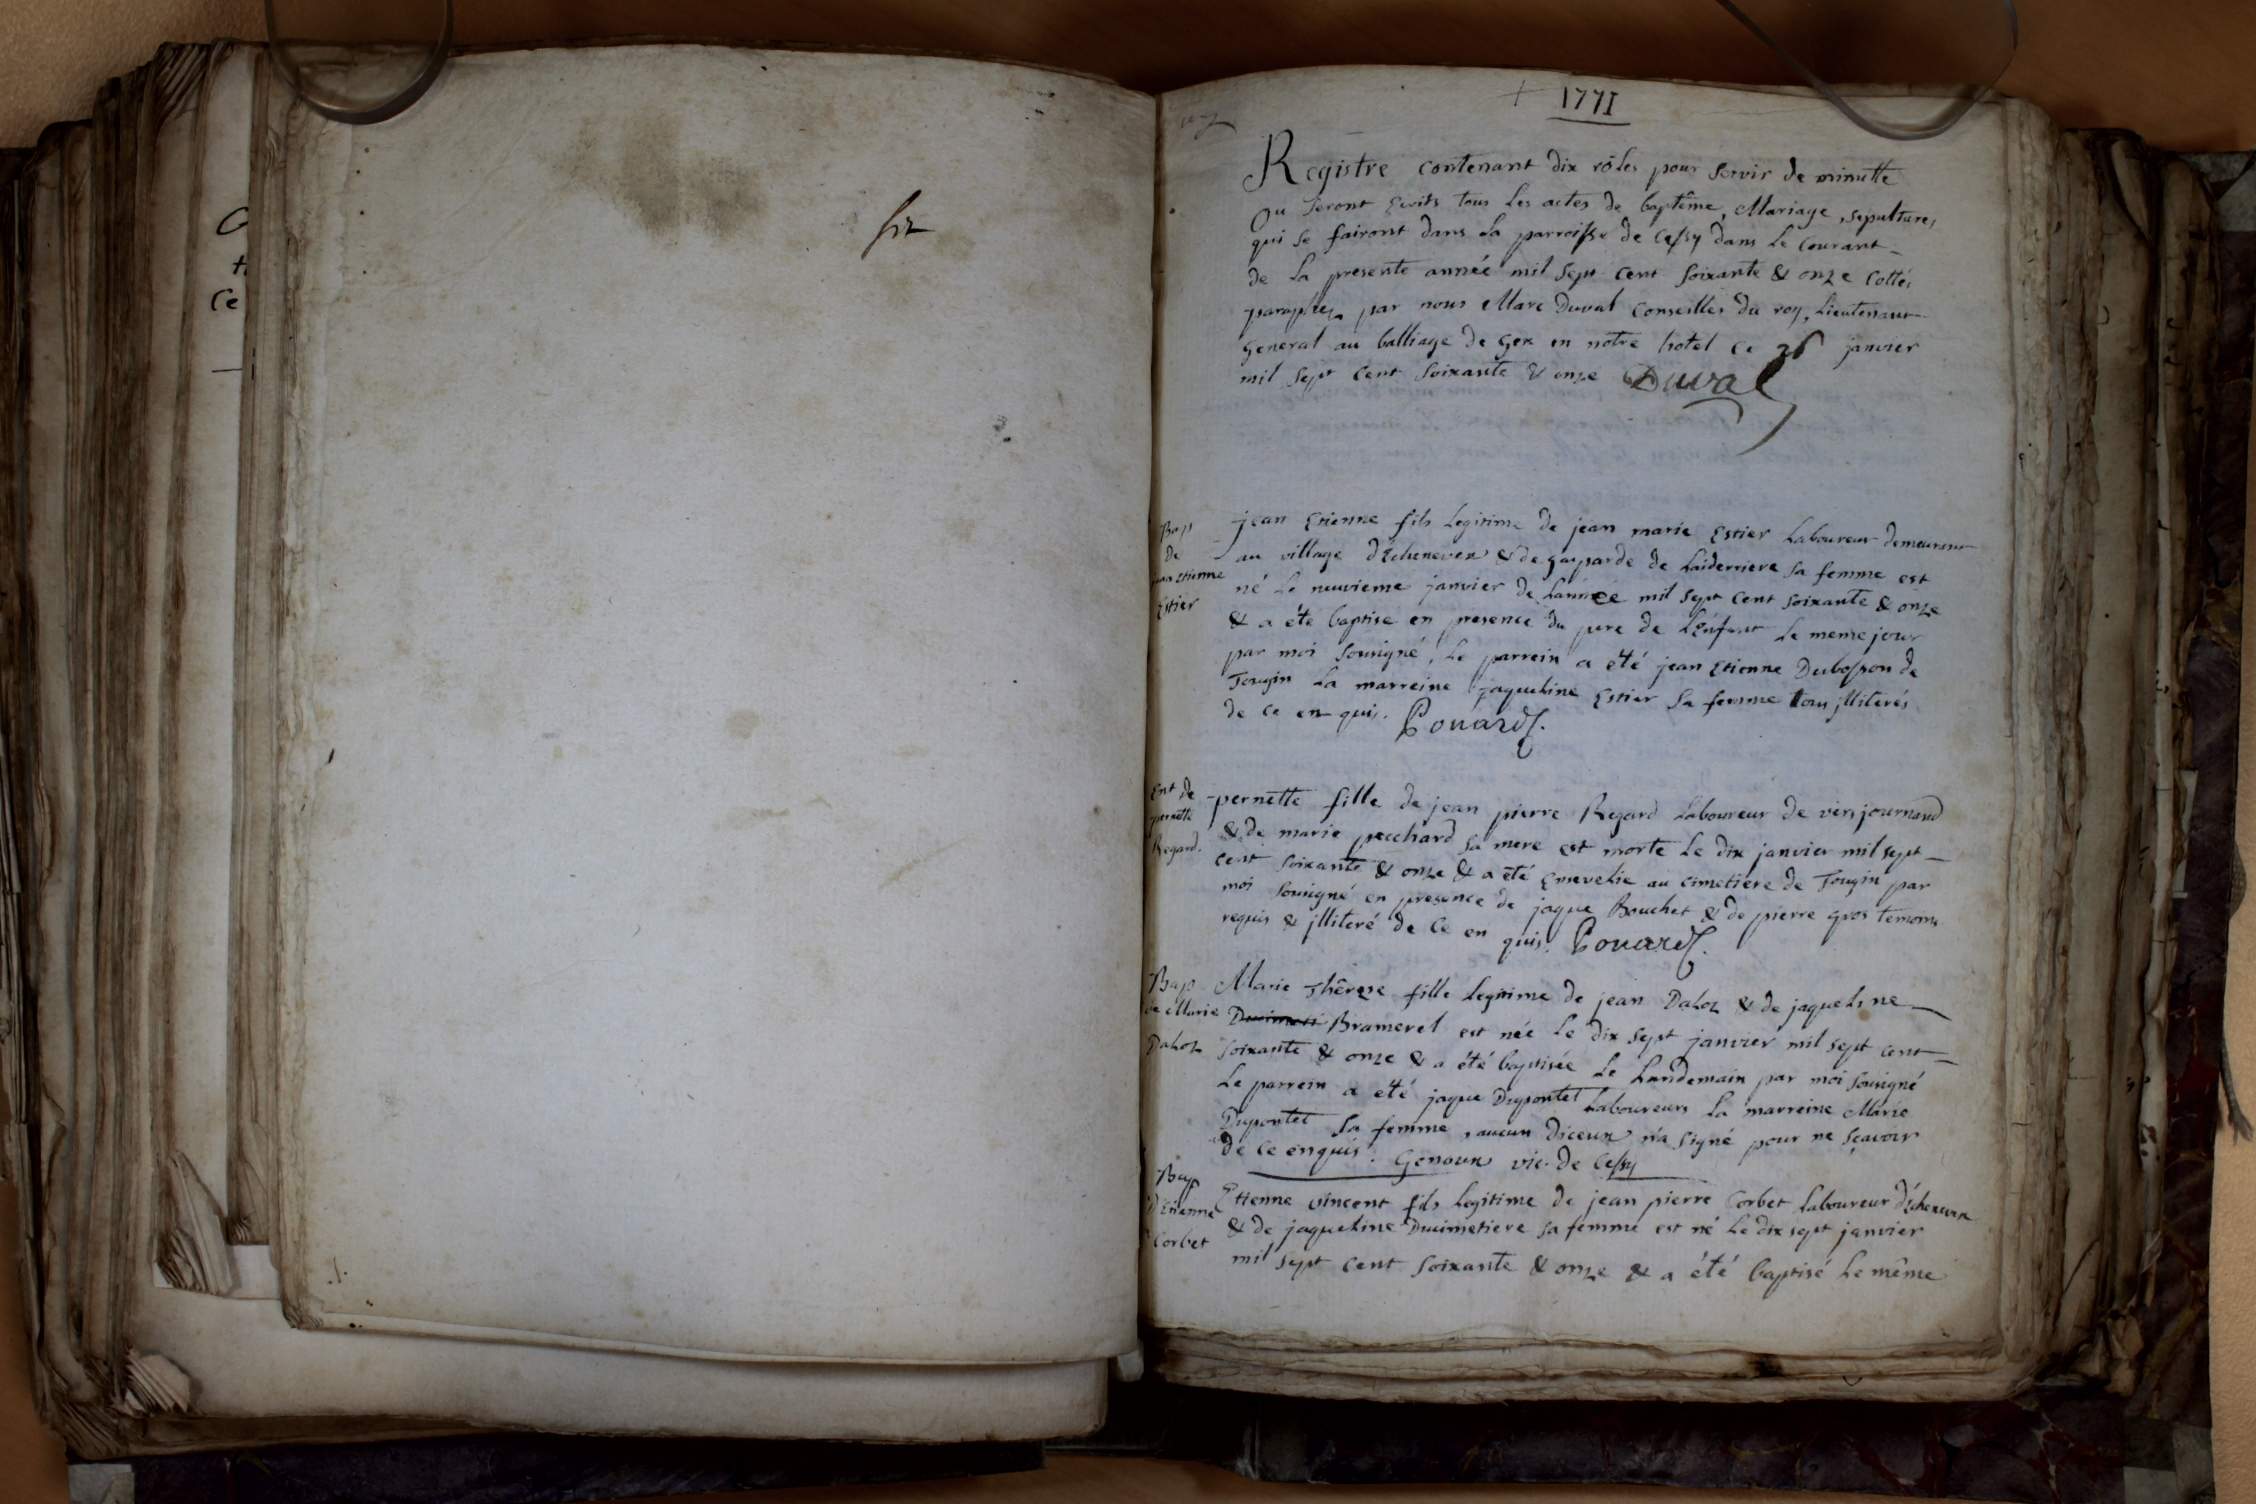 fin
+ 1771
Registre contenant dix rôles pour servir de minutte
Ou seront Ecrits tous les actes de baptême, Mariage, sepultures
qui se fairont dans la parroisse de Cessy dans le Courant
de la presente année mil sept cent soixante & onze Cottés
paraphez par nous Marc Duval Conseiller du roy, Lieutenant
General au balliage de Gex en notre hotel ce 26 janvier
mil sept cent soixante & onze Duval
Bap
de
jean Etienne
Estier
jean Etienne fils legitime de jean marie Estier Laboureur demeurant
au village d'Echenevex & de gasparde de Laiderriere sa femme est
né le neuvieme janvier de Lannee mil sept cent soixante & onze
& a éte baptise en presence du pere de L'Enfant le meme jour
par moi sousigné, le parrein a été jean Etienne Dubosson de
Tougin la marreine jaqueline Estier sa femme tous jlliterés
de ce en quis. Pouard.
Ent de
pernette
Regard.
pernette fille de jean pierre Regard Laboureur de vers journand
& de marie pecchard sa mere est morte le dix janvier mil sept
cent soixante & onze & a été Ensevelie au cimetiere de Tougin par
moi sousigné en presence de jaque Bouchet & de pierre gros temoins
requis & jlliteré de ce en quis. Pouard.
Bap
de Marie
Daloz
Marie Thérese fille legitime de jean Daloz & de jaqueline
Ducimeti Bramerel est née le dix sept janvier mil sept cent
soixante & onze & a été baptisée le Landemain par moi sousigné
Le parrein a été jaque Dupontet Laboureurs la marreine Marie
Dupontet sa femme, aucun diceux n'a signé pour ne sçavoir
de ce enquis. Genoux vic. de Cessy
Bap
d'Etienne
Corbet
Etienne vincent fils legitime de jean pierre Corbet Laboureur d'échenevex
& de jaqueline Ducimetiere sa femme est né le dix sept janvier
mil sept cent soixante & onze & a été baptisé le même